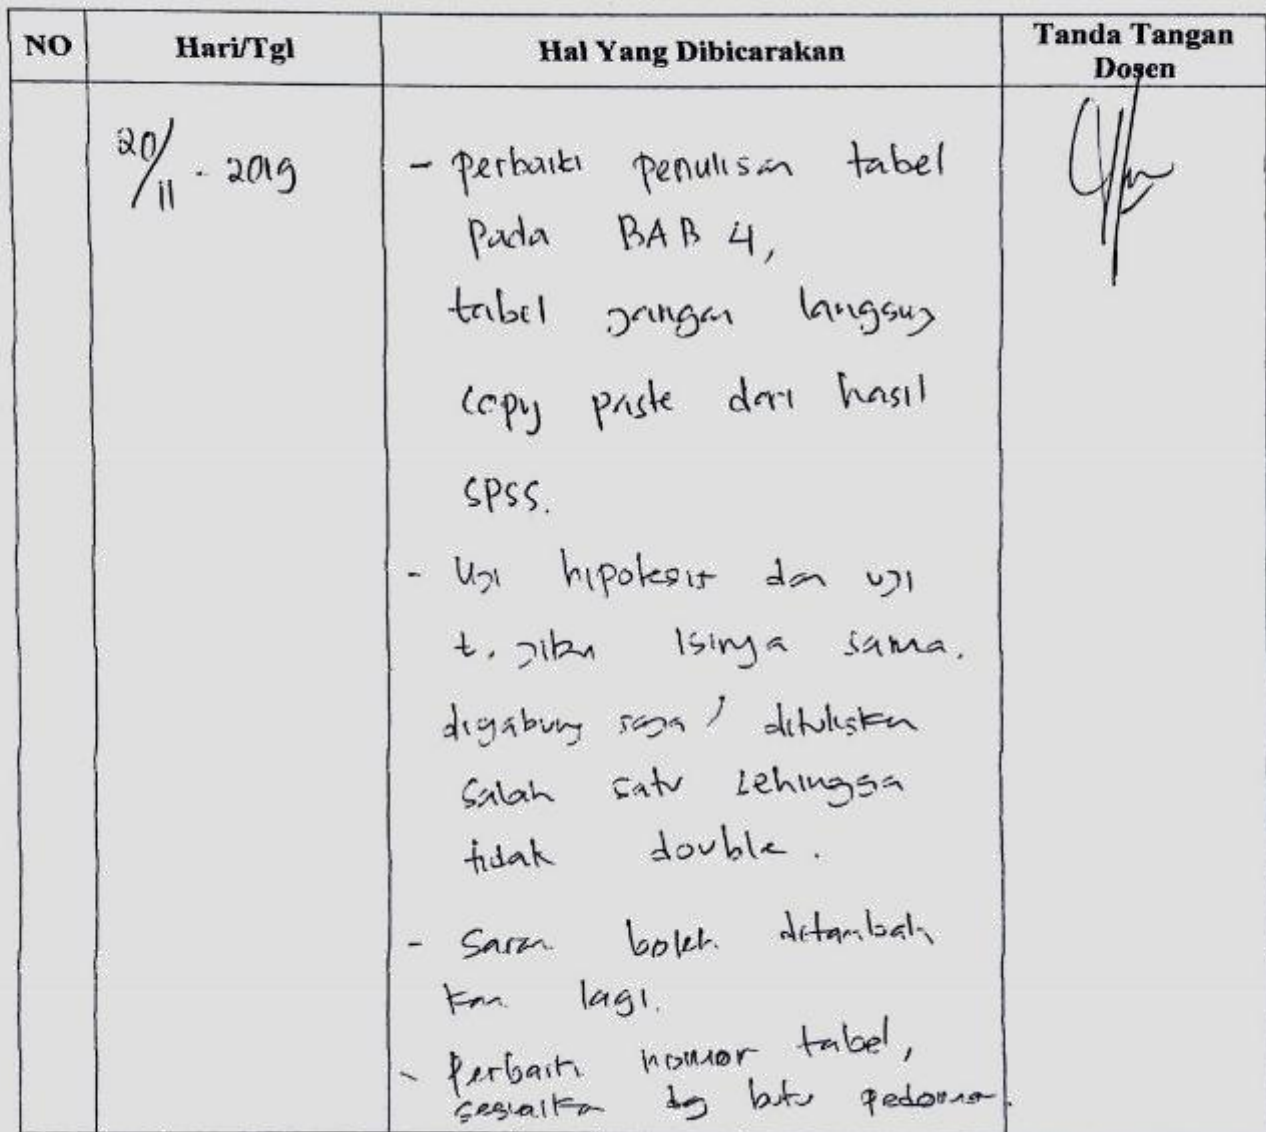 NO Hari/Tgl Hal Yang Dibicarakan Tanda Tangan Dosen
20/11 - 2019
- perbaiki penulisan tabel
pada BAB 4,
tabel jangan langsung
copy paste dari hasil
SPSS.
- Uji hipotesis dan uji
t. jika isinya sama.
digabung saja / dituliskan
salah satu sehingga
tidak double.
- Saran boleh ditambah
kan lagi.
- Perbaiki nomor tabel,
sesuaikan dg buku pedoman.